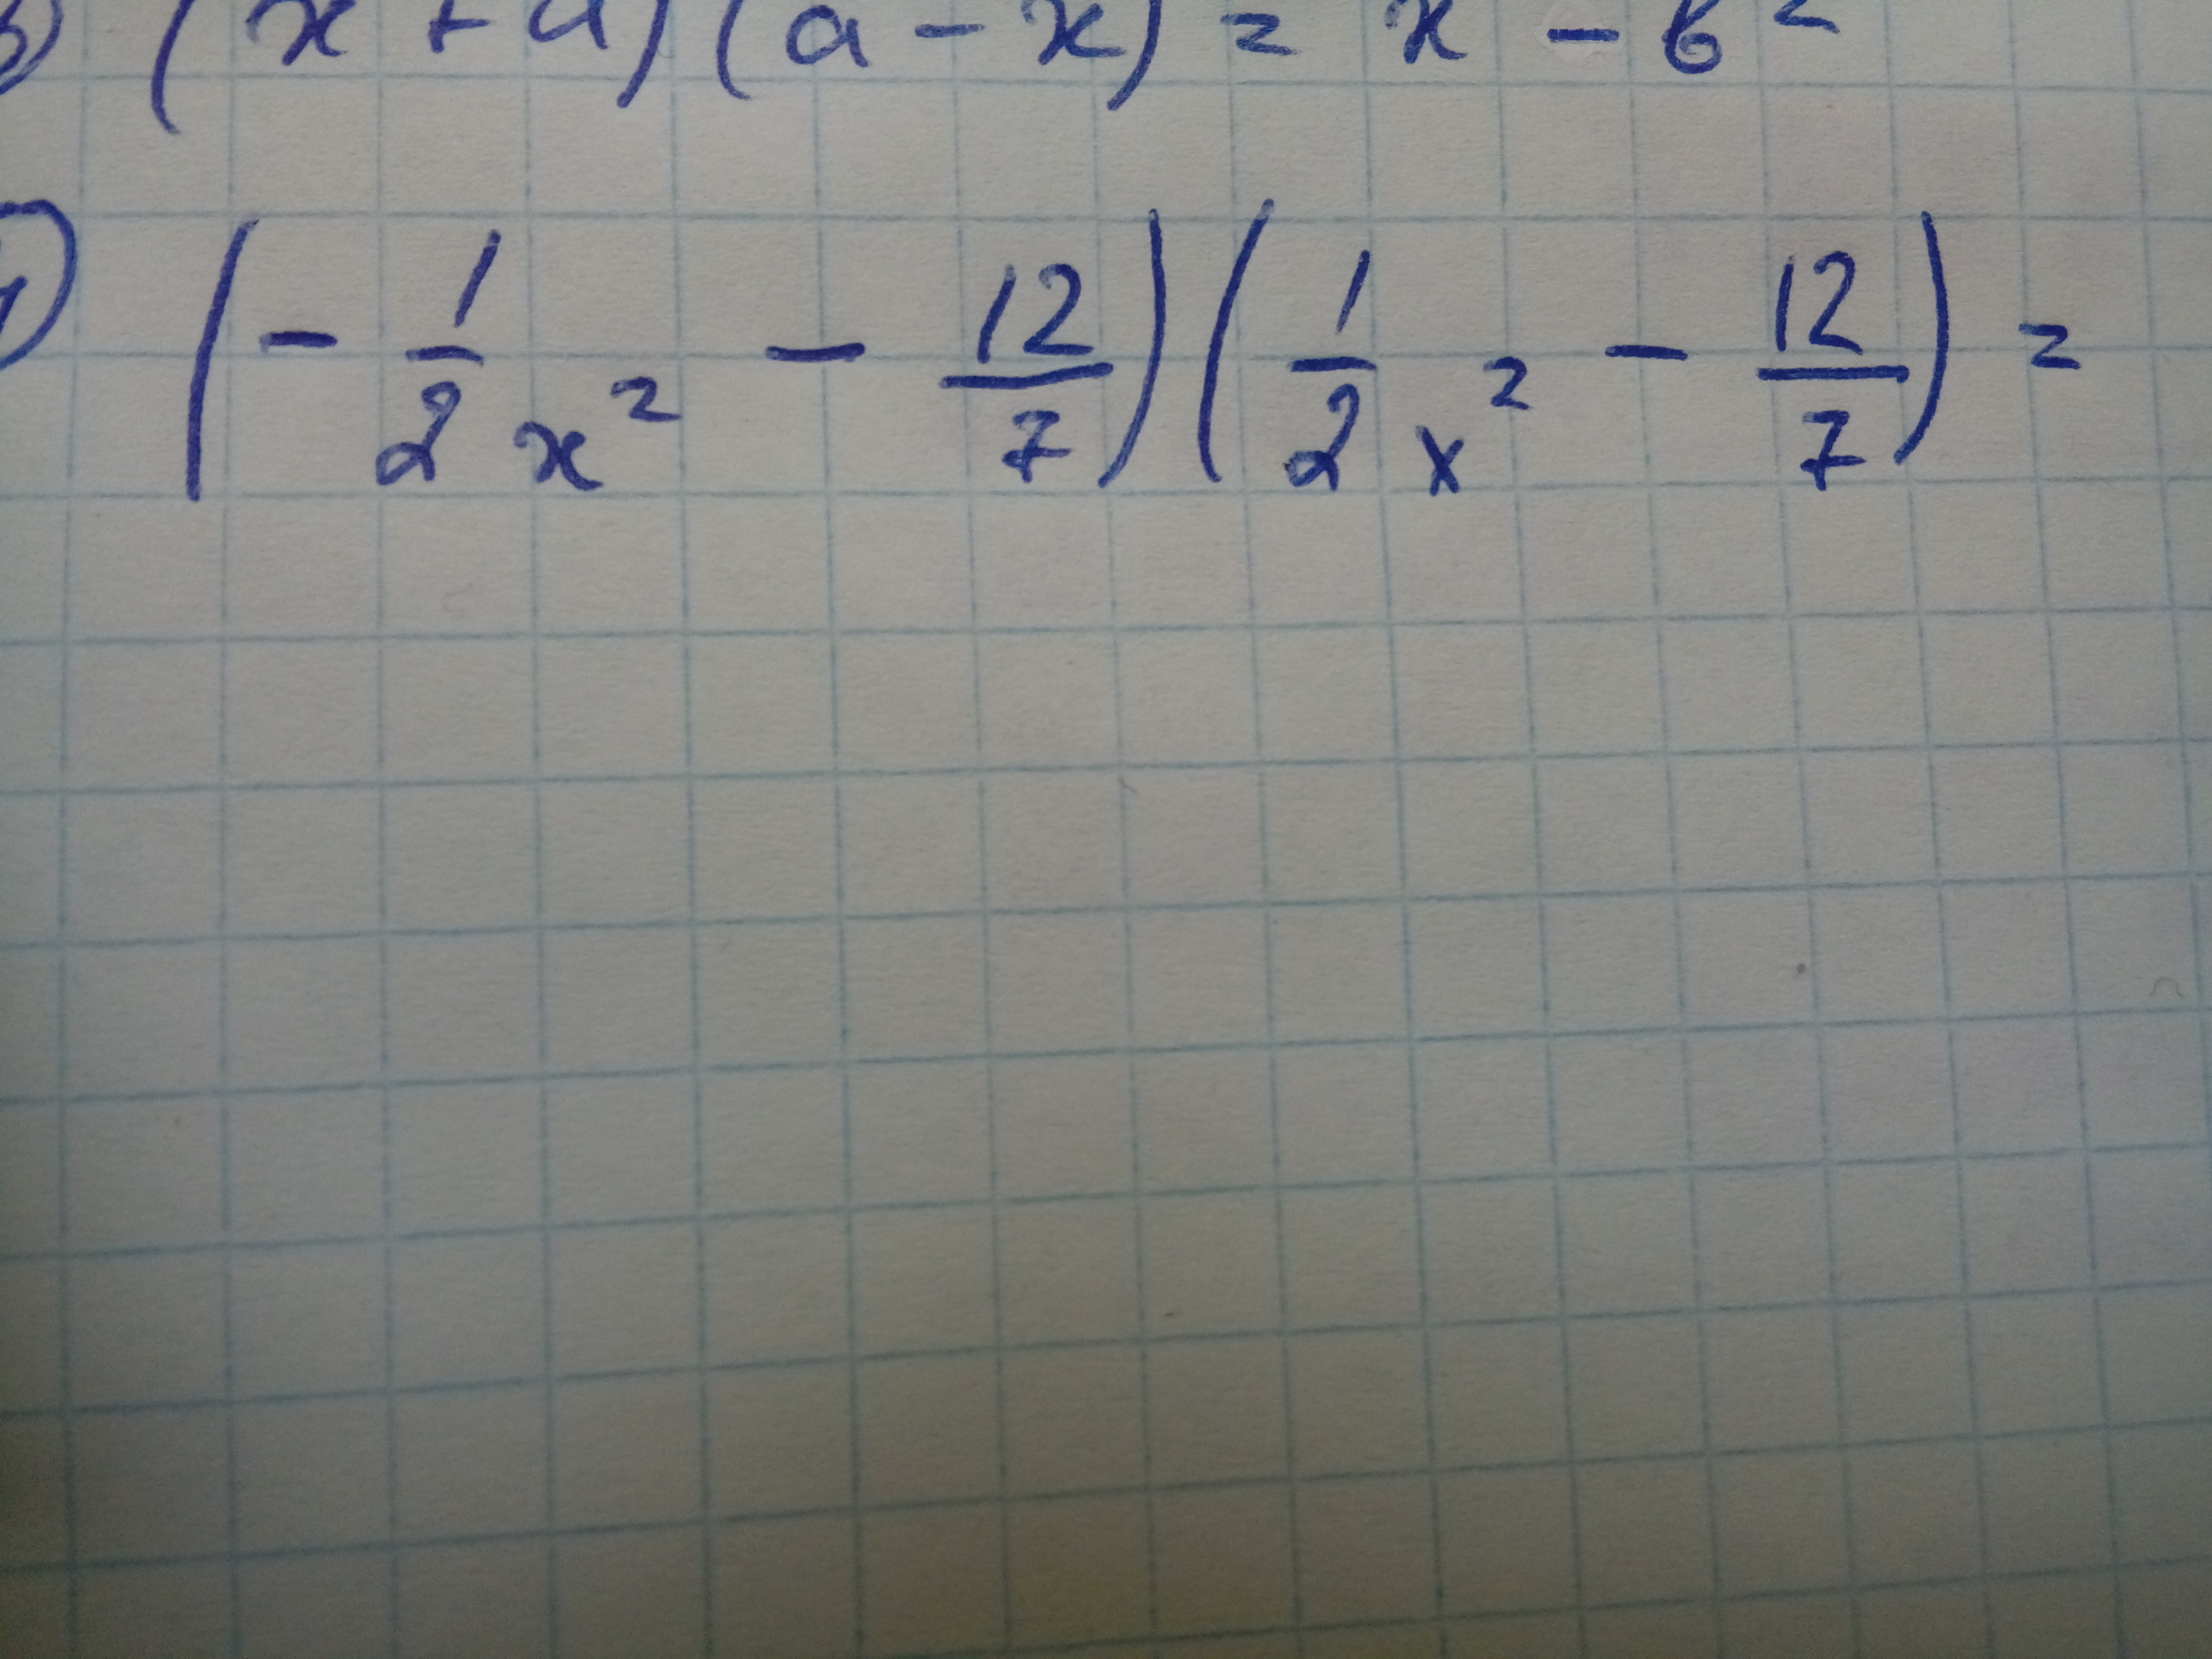 (x + a)(a - x) = x - b²
(-1/2 x² - 12/7)(1/2 x² - 12/7) =